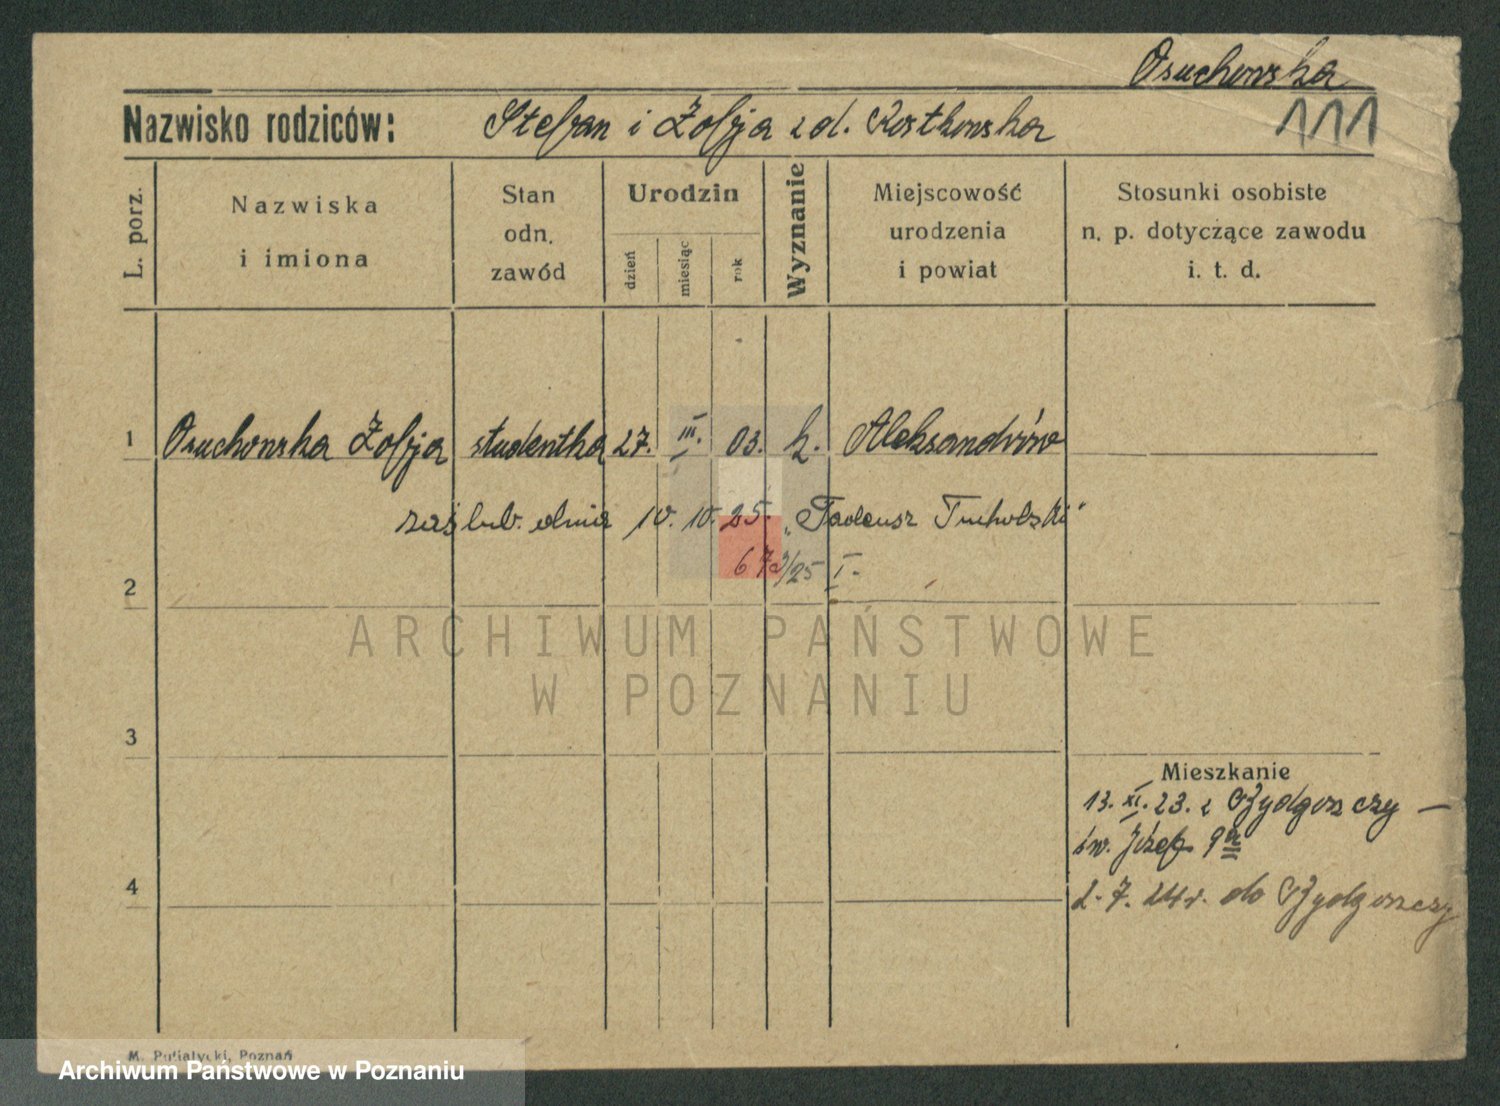 Osuchowska
111
Nazwisko rodziców: Stefan i Zofja z d. Kostkowska
L. porz.
Nazwiska
i imiona
Stan
odn.
zawód
Urodzin
dzień
miesiąc
rok
Wyznanie
Miejscowość
urodzenia
i powiat
Stosunki osobiste
n. p. dotyczące zawodu
i. t. d.
1 Osuchowska Zofja studentka 27. III. 03. k. Aleksandrów
zaślub. dnia 10. 10. 25. „Tadeusz Tucholski"
673/25 I.
2
ARCHIWUM PAŃSTWOWE
W POZNANIU
3
Mieszkanie
13. XI. 23. z Bydgoszczy —
św. Józefa 9
4
2. 7. 24 r. do Bydgoszczy
M. Putiatycki, Poznań
Archiwum Państwowe w Poznaniu